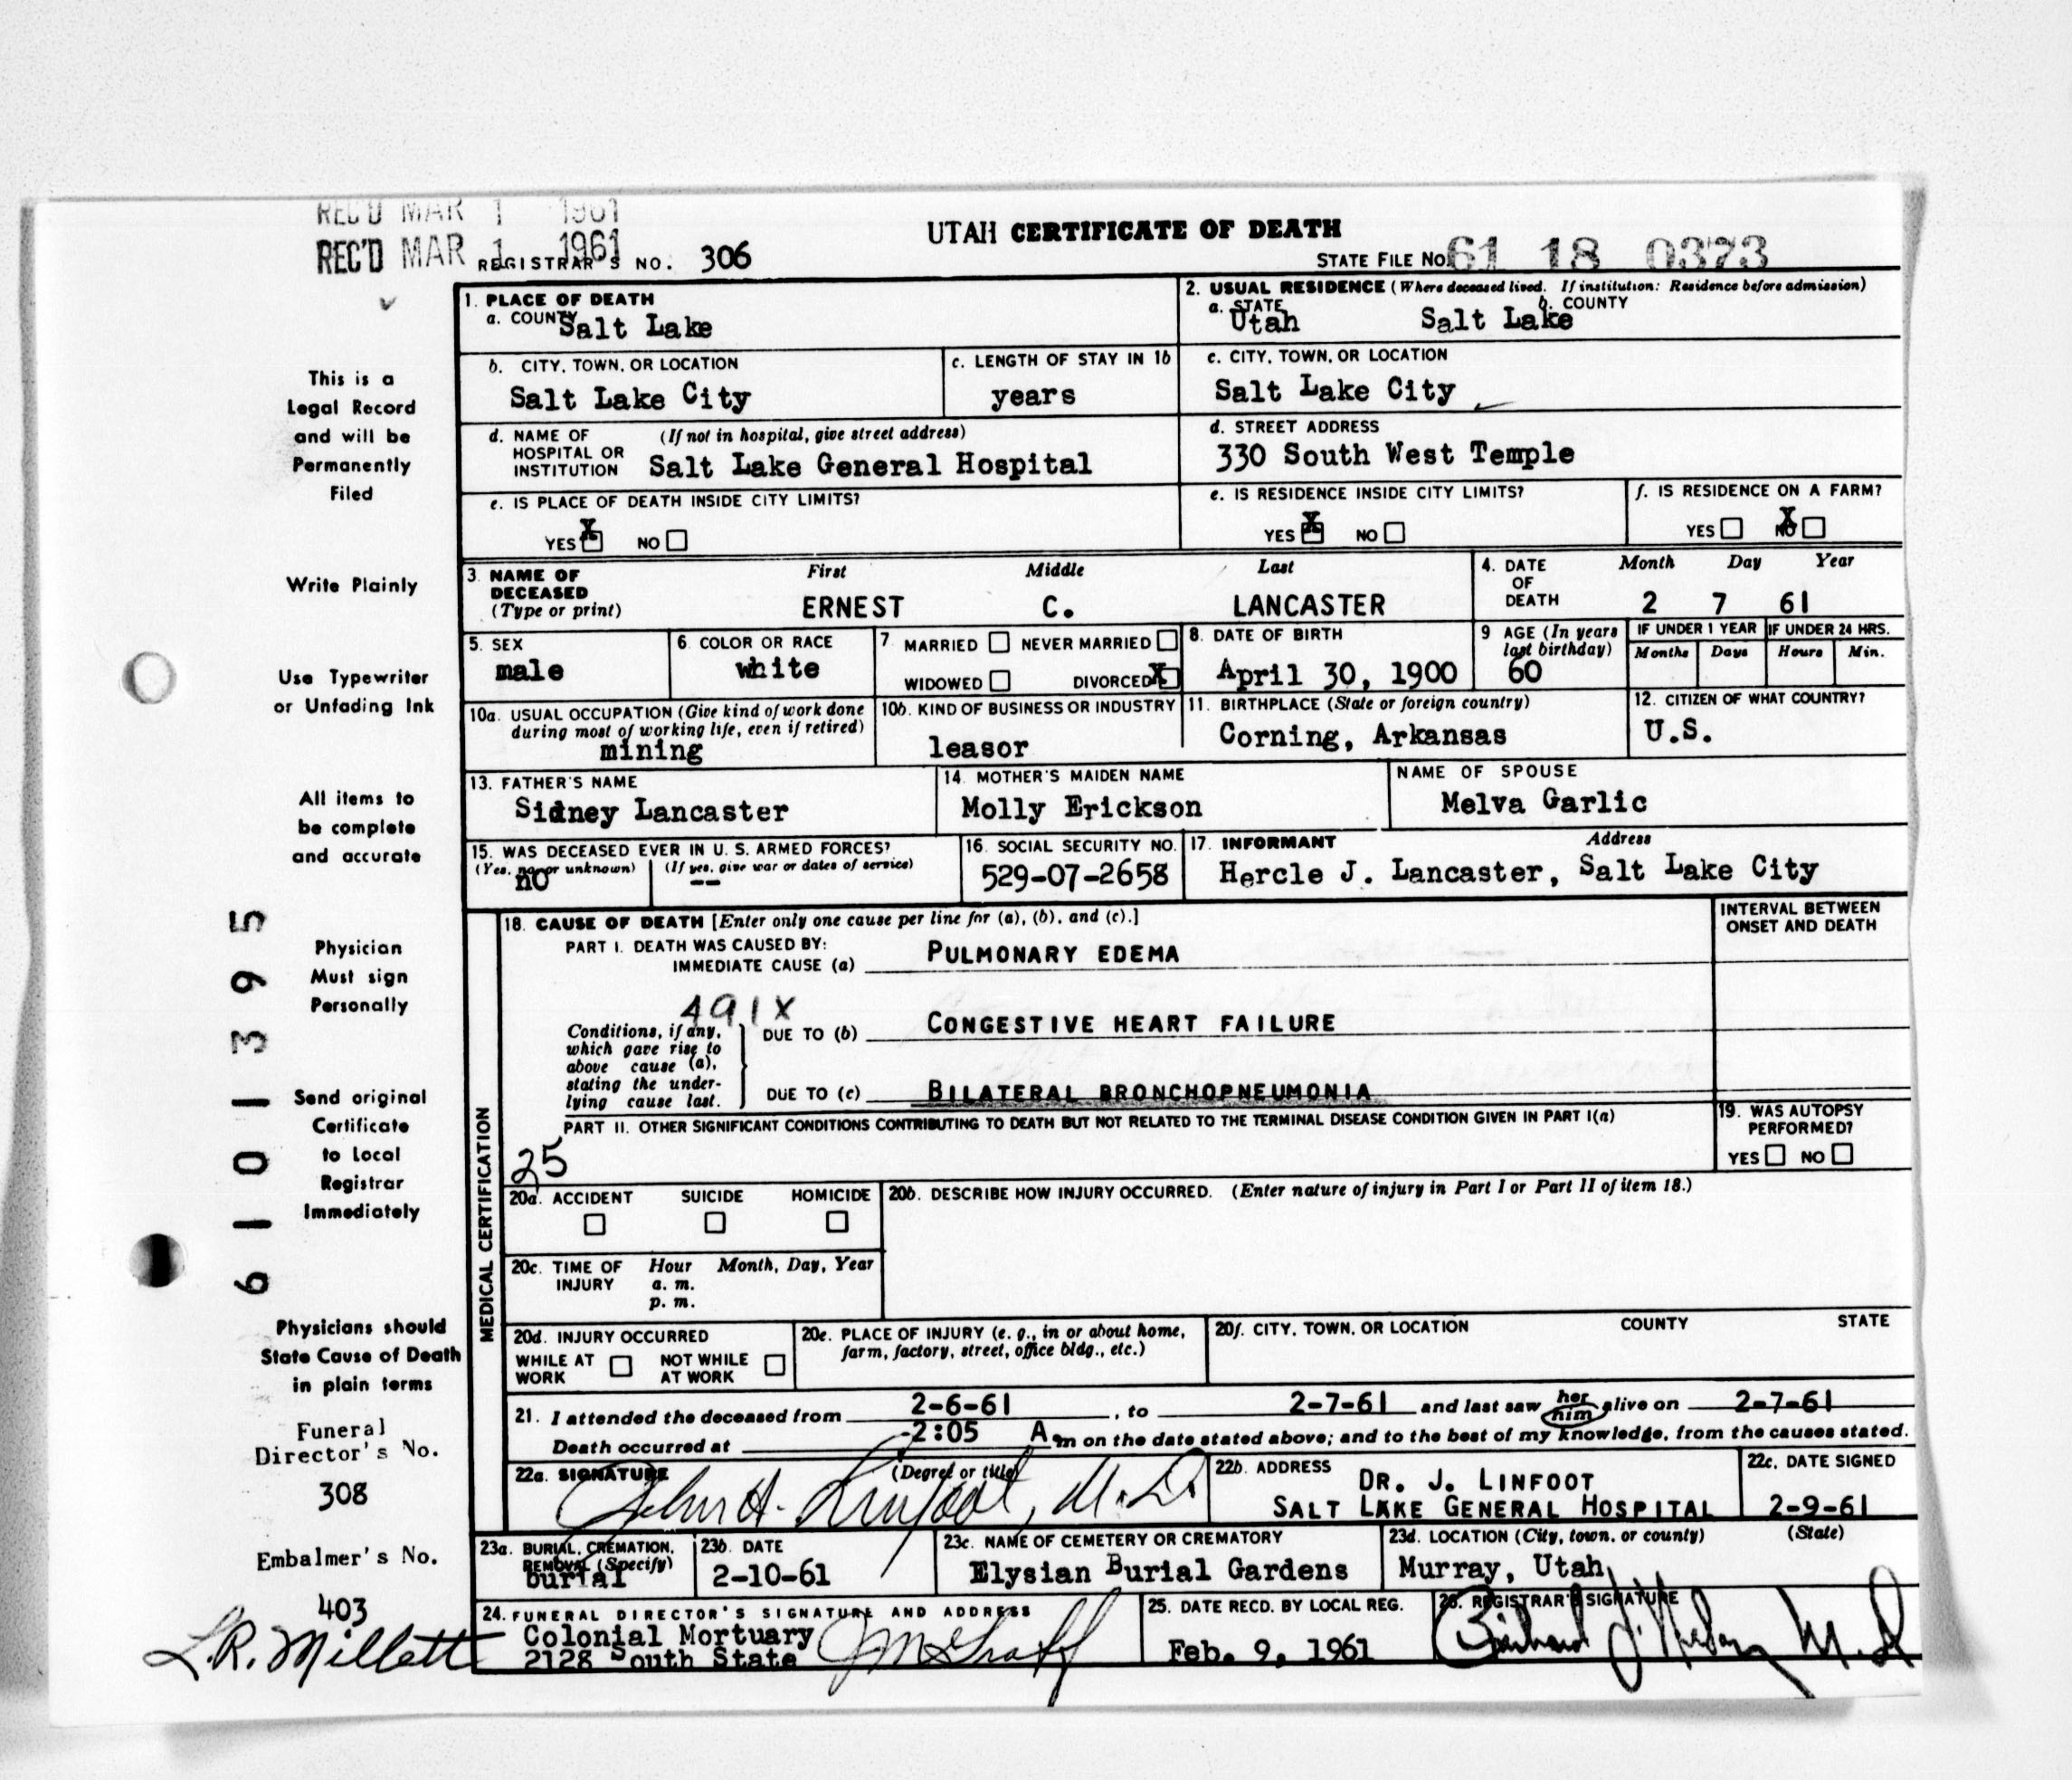 REC'D MAR 1 1961
REC'D MAR 1 1961
UTAH CERTIFICATE OF DEATH
REGISTRAR'S NO. 306
STATE FILE No. 61 18 0373
1. PLACE OF DEATH
a. COUNTY Salt Lake
2. USUAL RESIDENCE (Where deceased lived. If institution: Residence before admission)
a. STATE Utah b. COUNTY Salt Lake
b. CITY, TOWN, OR LOCATION
Salt Lake City
c. LENGTH OF STAY IN 1b
years
c. CITY, TOWN, OR LOCATION
Salt Lake City
d. NAME OF HOSPITAL OR INSTITUTION (If not in hospital, give street address)
Salt Lake General Hospital
d. STREET ADDRESS
330 South West Temple
e. IS PLACE OF DEATH INSIDE CITY LIMITS?
YES X NO
e. IS RESIDENCE INSIDE CITY LIMITS?
YES X NO
f. IS RESIDENCE ON A FARM?
YES NO X
3. NAME OF DECEASED (Type or print)
First Middle Last
ERNEST C. LANCASTER
4. DATE OF DEATH
Month Day Year
2 7 61
5. SEX
male
6. COLOR OR RACE
white
7. MARRIED NEVER MARRIED
WIDOWED DIVORCED X
8. DATE OF BIRTH
April 30, 1900
9 AGE (In years last birthday)
60
IF UNDER 1 YEAR
Months Days
IF UNDER 24 HRS.
Hours Min.
10a. USUAL OCCUPATION (Give kind of work done during most of working life, even if retired)
mining
10b. KIND OF BUSINESS OR INDUSTRY
leasor
11. BIRTHPLACE (State or foreign country)
Corning, Arkansas
12. CITIZEN OF WHAT COUNTRY?
U.S.
13. FATHER'S NAME
Sidney Lancaster
14. MOTHER'S MAIDEN NAME
Molly Erickson
NAME OF SPOUSE
Melva Garlic
15. WAS DECEASED EVER IN U. S. ARMED FORCES?
(Yes, no, or unknown) (If yes, give war or dates of service)
no --
16. SOCIAL SECURITY NO.
529-07-2658
17. INFORMANT Address
Hercle J. Lancaster, Salt Lake City
MEDICAL CERTIFICATION
18. CAUSE OF DEATH [Enter only one cause per line for (a), (b), and (c).]
INTERVAL BETWEEN ONSET AND DEATH
PART I. DEATH WAS CAUSED BY:
IMMEDIATE CAUSE (a) PULMONARY EDEMA
491X
Conditions, if any, which gave rise to above cause (a), stating the underlying cause last.
DUE TO (b) CONGESTIVE HEART FAILURE
DUE TO (c) BILATERAL BRONCHOPNEUMONIA
PART II. OTHER SIGNIFICANT CONDITIONS CONTRIBUTING TO DEATH BUT NOT RELATED TO THE TERMINAL DISEASE CONDITION GIVEN IN PART I(a)
25
19. WAS AUTOPSY PERFORMED?
YES NO
20a. ACCIDENT SUICIDE HOMICIDE
20b. DESCRIBE HOW INJURY OCCURRED. (Enter nature of injury in Part I or Part II of item 18.)
20c. TIME OF INJURY Hour Month, Day, Year
a. m.
p. m.
20d. INJURY OCCURRED
WHILE AT WORK NOT WHILE AT WORK
20e. PLACE OF INJURY (e. g., in or about home, farm, factory, street, office bldg., etc.)
20f. CITY, TOWN, OR LOCATION COUNTY STATE
21. I attended the deceased from 2-6-61, to 2-7-61 and last saw her him alive on 2-7-61
Death occurred at -2:05 A.m on the date stated above; and to the best of my knowledge, from the causes stated.
22a. SIGNATURE (Degree or title)
John A. Linfoot, M.D.
22b. ADDRESS
DR. J. LINFOOT
SALT LAKE GENERAL HOSPITAL
22c. DATE SIGNED
2-9-61
23a. BURIAL, CREMATION, REMOVAL (Specify)
burial
23b. DATE
2-10-61
23c. NAME OF CEMETERY OR CREMATORY
Elysian Burial Gardens
23d. LOCATION (City, town, or county) (State)
Murray, Utah
24. FUNERAL DIRECTOR'S SIGNATURE AND ADDRESS
Colonial Mortuary
2128 South State
25. DATE RECD. BY LOCAL REG.
Feb. 9, 1961
26. REGISTRAR'S SIGNATURE
M.D
This is a
Legal Record
and will be
Permanently
Filed
Write Plainly
Use Typewriter
or Unfading Ink
All items to
be complete
and accurate
Physician
Must sign
Personally
Send original
Certificate
to Local
Registrar
Immediately
Physicians should
State Cause of Death
in plain terms
Funeral
Director's No.
308
Embalmer's No.
403
L.R. Millett
6101395